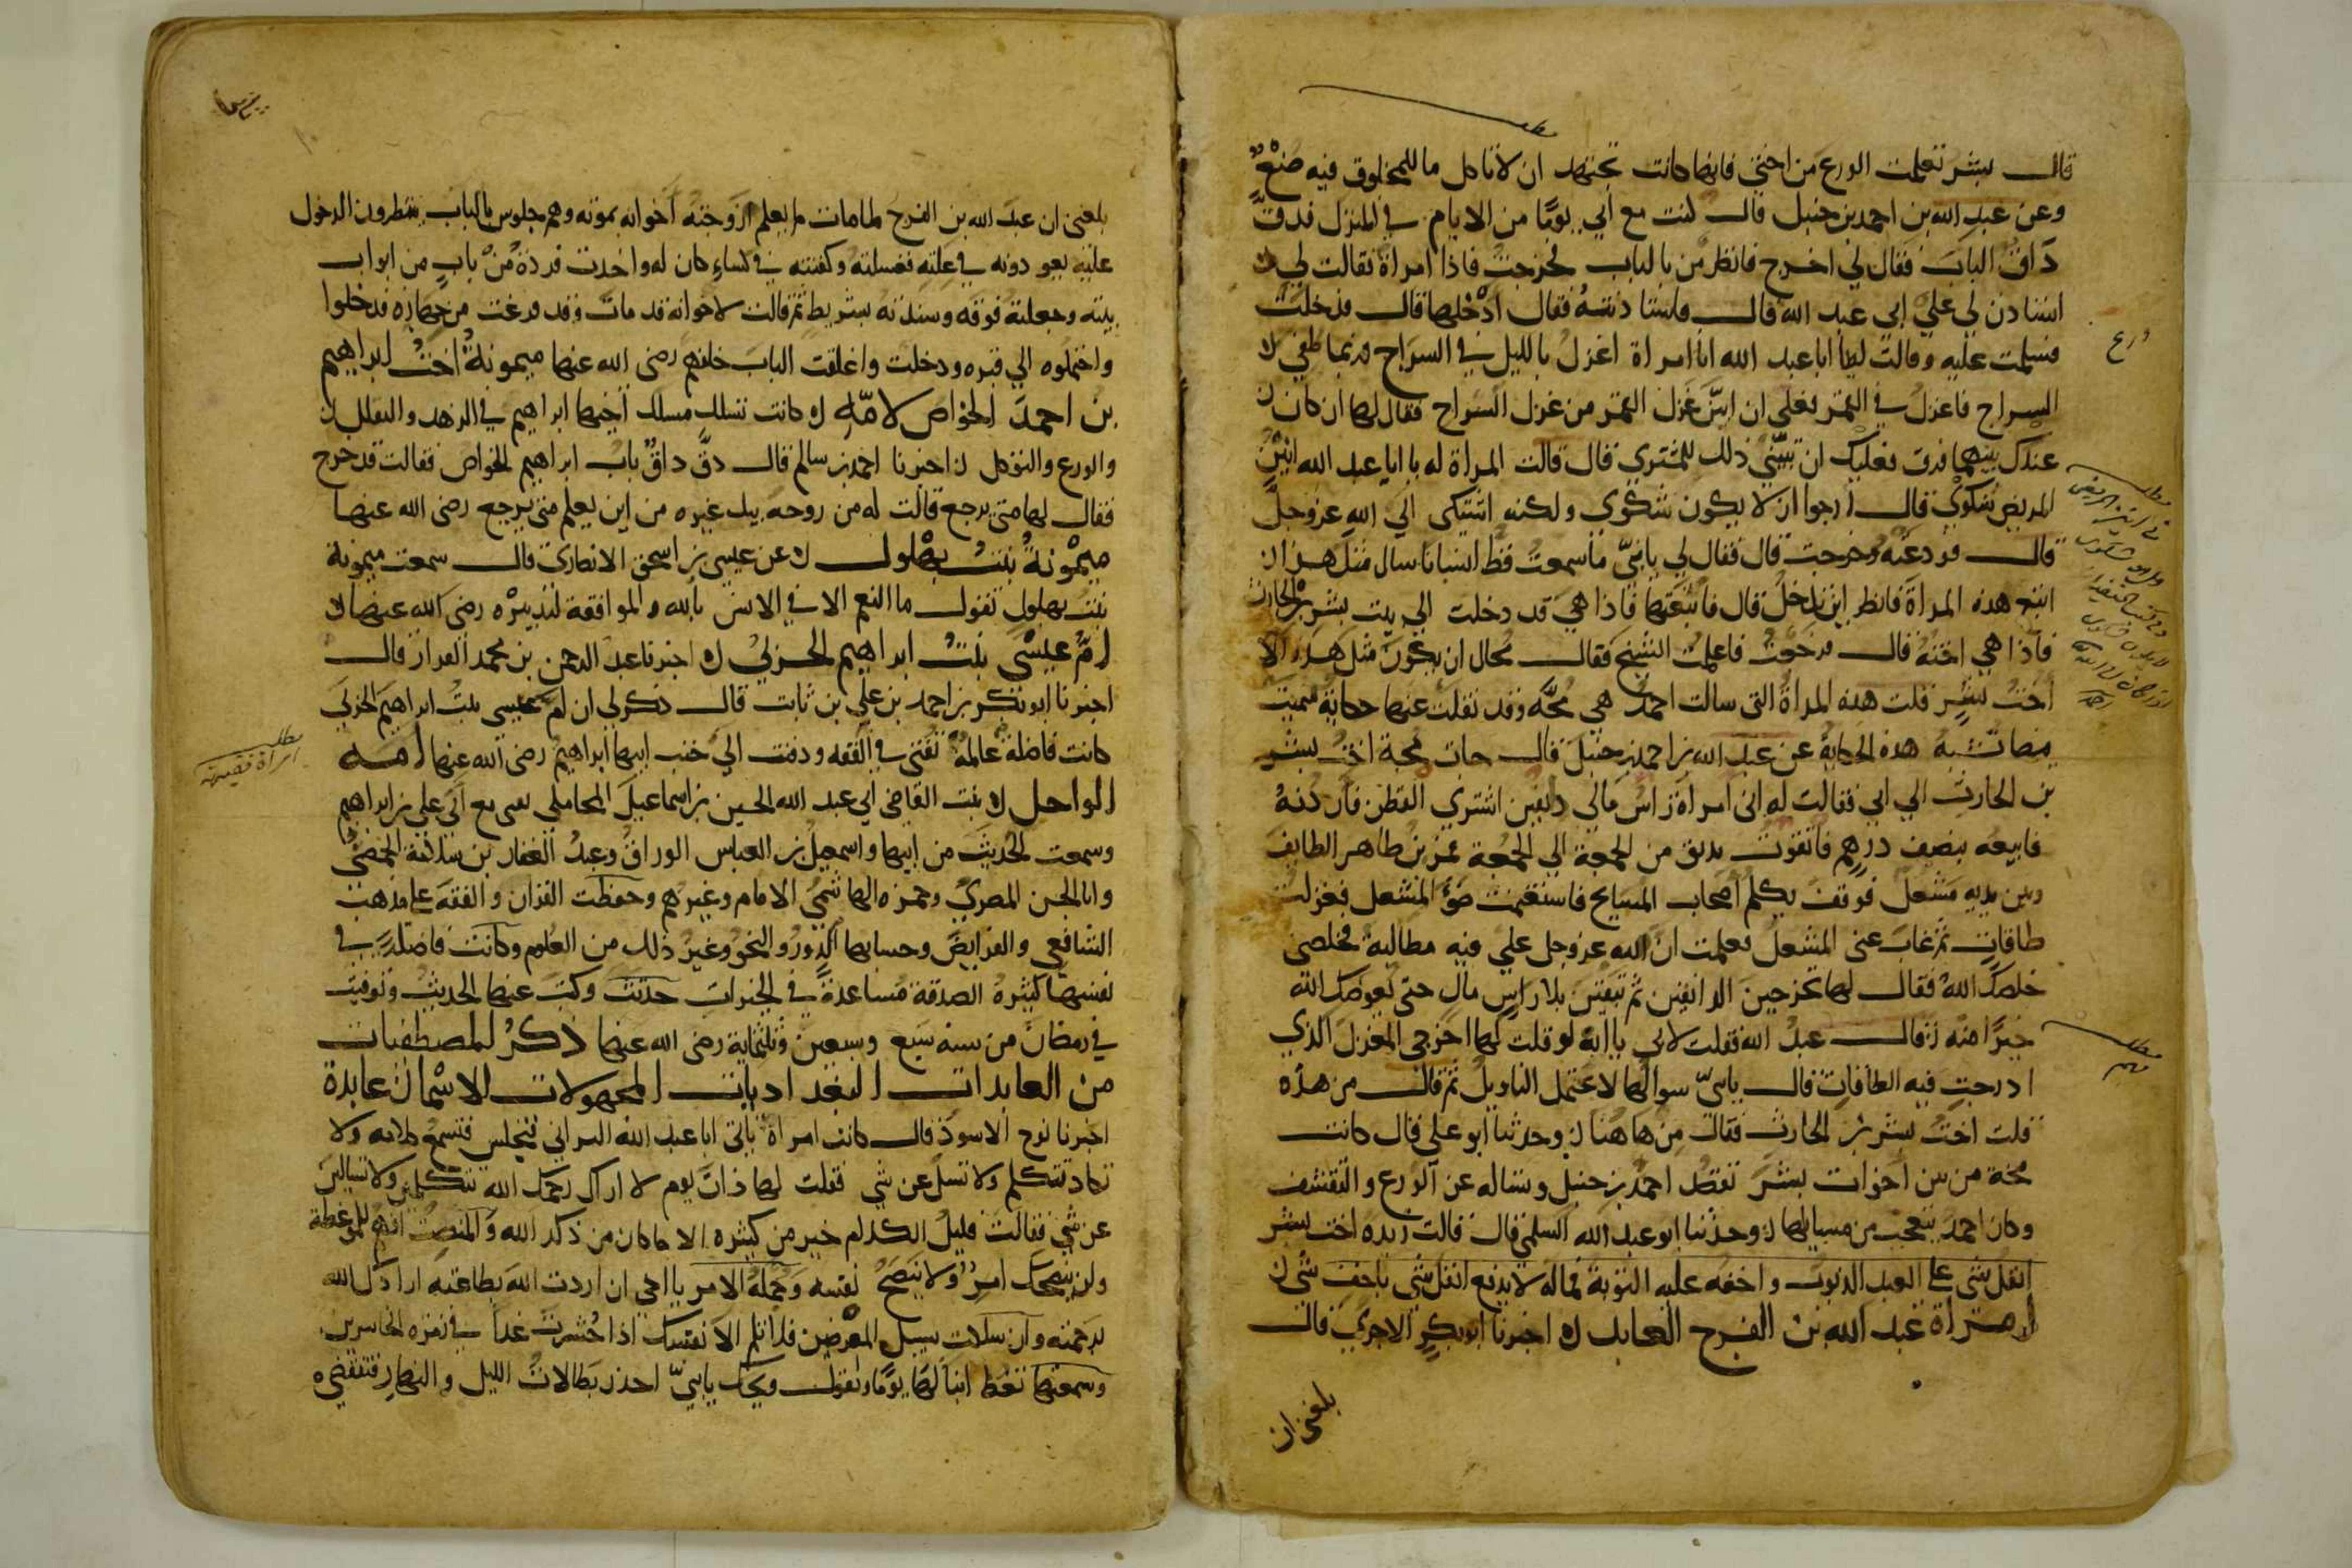 قال بشر تعلمت الورع من اختي فانها كانت تجتهد ان لا تاكل ما للمخلوق فيه صنع
وعن عبد الله بن احمد بن حنبل قال كنت مع ابي يوما من الايام في المنزل فدق
داق الباب فقال لي اخرج فانظر من بالباب فخرجت فاذا امراة فقالت لي
استاذن لي علي ابي عبد الله قال فاستاذنته فقال ادخلها قال فدخلت
فسلمت عليه وقالت له يا ابا عبد الله انا امراة اغزل بالليل في السراج فربما طفي
السراج فاغزل في القمر فعلي ان ابين غزل القمر من غزل السراج فقال لها ان كان
عندك بينهما فرق فعليك ان تبيني ذلك للمشتري قال قالت المراة له يا ابا عبد الله انين
المريض شكوي قال ارجوا ان لا يكون شكوي ولكنه اشتكي الي الله عز وجل
قال فودعته وخرجت قال فقال لي يا بني ما سمعت قط انسانا سال مثل هذا
اتبع هذه المراة فانظر اين تدخل قال فاتبعتها فاذا هي قد دخلت الي بيت بشر بن الحارث
فاذا هي اخته قال فرجعت فاعلمت الشيخ فقال محال ان يكون مثل هذه الا
اخت بشر قلت هذه المراة التي سالت احمد هي مخة وقد نقلت عنها حكاية سميت
هذه الحكاية عن عبد الله بن احمد بن حنبل قال جات مخة اخت بشر
بن الحارث الي ابي فقالت له اني امراة راس مالي دانقين اشتري القطن فاردنه
فابيعه بنصف درهم فاتقوت بدانق من الجمعة الي الجمعة فمر بن طاهر الطايف
وبين يديه مشعل فوقف يكلم اصحاب المسايح فاستغنمت ضو المشعل فغزلت
طاقات ثم غاب عني المشعل فعلمت ان الله عز وجل علي فيه مطالبة فخلصني
خلصك الله فقال لها تخرجين الدانقين ثم تبقين بلا راس مال حتي يعوضك الله
خيرا منه قال عبد الله فقلت لابي يا ابه لو قلت لها اخرجي المغزل الذي
ادرجت فيه الطاقات قال يا بني سوالها لا يحتمل التاويل ثم قال من هذه
قلت اخت بشر بن الحارث فقال من هاهنا وحدثنا ابو علي قال كانت
مخة من بين اخوات بشر تقصد احمد بن حنبل وتساله عن الورع والتقشف
وكان احمد يتعجب من مسايلها وحدثنا ابو عبد الله السلمي قال قالت زبدة اخت بشر
اثقل شي علي العبد الذنوب واخفه عليه التوبة فماله لا يدفع اثقل شي باخف شي
امراة عبد الله بن الفرج العابد اخبرنا ابو بكر الاجري قال
بلغني ان
مطلب
ورع
مطلب
مطلب
مهم
بلغني ان عبد الله بن الفرج لما مات لم يعلم زوجته اخوانه بموته وهم جلوس بالباب ينتظرون الدخول
عليه يعودونه في علته فغسلته وكفنته في كساء كان له واخدت فردة من باب من ابواب
بيته وجعلته فوقه وشدته بشريط ثم قالت لاخوانه قد مات وقد فرغت من جهازه فدخلوا
واحتملوه الي قبره ودخلت واغلقت الباب خلفهم رضي الله عنها ميمونة اخت ابراهيم
بن احمد الخواص لامه كانت تسلك مسلك اخيها ابراهيم في الزهد والتقلل
والورع والتوكل اخبرنا احمد بن سالم قال دق داق باب ابراهيم الخواص فقالت قد خرج
فقال لها متي يرجع قالت له من روحه بيد غيره من اين يعلم متي يرجع رضي الله عنها
ميمونة بنت بهلول عن عيسي بن اسحق الانصاري قال سمعت ميمونة
بنت بهلول تقول ما النعم الا في الانس بالله والموافقة لتدبيره رضي الله عنها
ام عيسي بنت ابراهيم الحربي اخبرنا عبد الرحمن بن محمد القزاز قال
اخبرنا ابو بكر بن احمد بن علي بن ثابت قال ذكر لي ان ام عيسي بنت ابراهيم الحربي
كانت فاضلة عالمة تفتي في الفقه ودفنت الي جنب ابيها ابراهيم رضي الله عنها امة
الواحد بنت القاضي ابي عبد الله الحسين بن اسماعيل المحاملي تفتي مع ابي علي بن ابراهيم
وسمعت الحديث من ابيها واسمعيل بن العباس الوراق وعبد الغفار بن سلامة الحمصي
وابا الحسن المصري وحمزة الهاشمي الامام وغيرهم وحفظت القران والفقه علي مذهب
الشافعي والفرايض وحسابها الدور والنحو وغير ذلك من العلوم وكانت فاضلة في
نفسها كثيرة الصدقة مساعدة في الخيرات حدثت وكتب عنها الحديث وتوفيت
في رمضان من سنة سبع وسبعين وثلثماية رضي الله عنها ذكر المصطفيات
من العابدات البغداديات المجهولات الاسما عابدة
اخبرنا نوح الاسود قال كانت امراة تاتي ابا عبد الله البراثي فتجلس فتسمع كلامه ولا
تكاد تتكلم ولا تسل عن شي فقلت لها ذات يوم لا اراك رحمك الله تتكلمين ولا تسالين
عن شي فقالت قليل الكلام خير من كثيره الا ما كان من ذكر الله والمنصت افهم للموعظة
ولن ينصحك امرؤ لا ينصح نفسه وجملة الامر يا اخي ان اردت الله بطاعته ارادك الله
برحمته وان سلكت سبيل المعرضين فلا تلم الا نفسك اذا حشرت غدا في زمرة الخاسرين
وسمعتها تعظ ابنا لها يوما وتقول ويحك يا بني احذر بطالات الليل والنهار فتنقضي
مطلب
امراة فقيهة